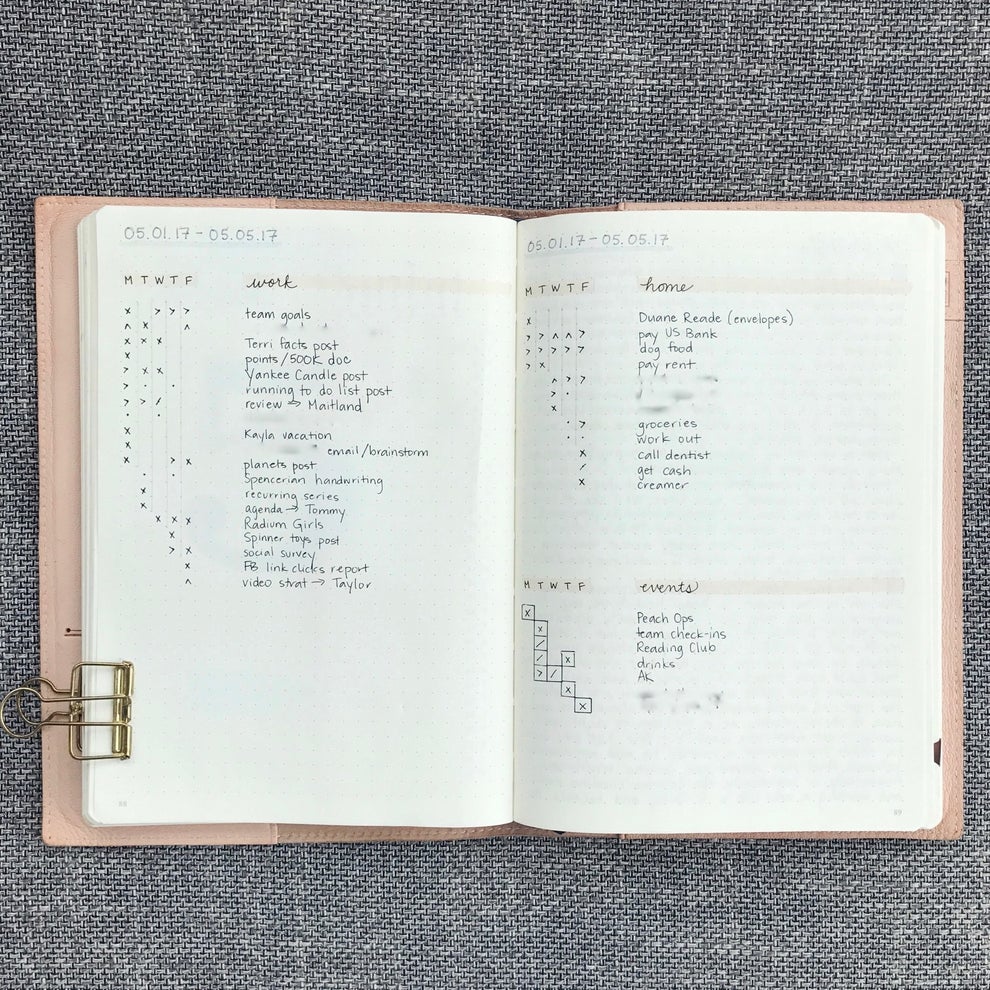 05.01.17 - 05.05.17
M T W T F work
x > > > team goals
^ x ^
x x x Terri facts post
x points/500K doc
x x Yankee Candle post
> · · running to do list post
> > / review → Maitland
· ·
x Kayla vacation
x email/brainstorm
x > x planets post
· · Spencerian handwriting
x recurring series
x agenda → Tommy
x x x Radium Girls
x Spinner toys post
> x social survey
x FB link clicks report
^ video strat → Taylor
88
05.01.17 - 05.05.17
M T W T F home
x Duane Reade (envelopes)
> > ^ ^ > pay US Bank
> > > > > dog food
> x pay rent
^ > >
> ·
x
· > groceries
· · work out
x call dentist
/ get cash
x creamer
M T W T F events
x Peach Ops
x team check-ins
/ Reading Club
/ x drinks
> / AK
x
x
89